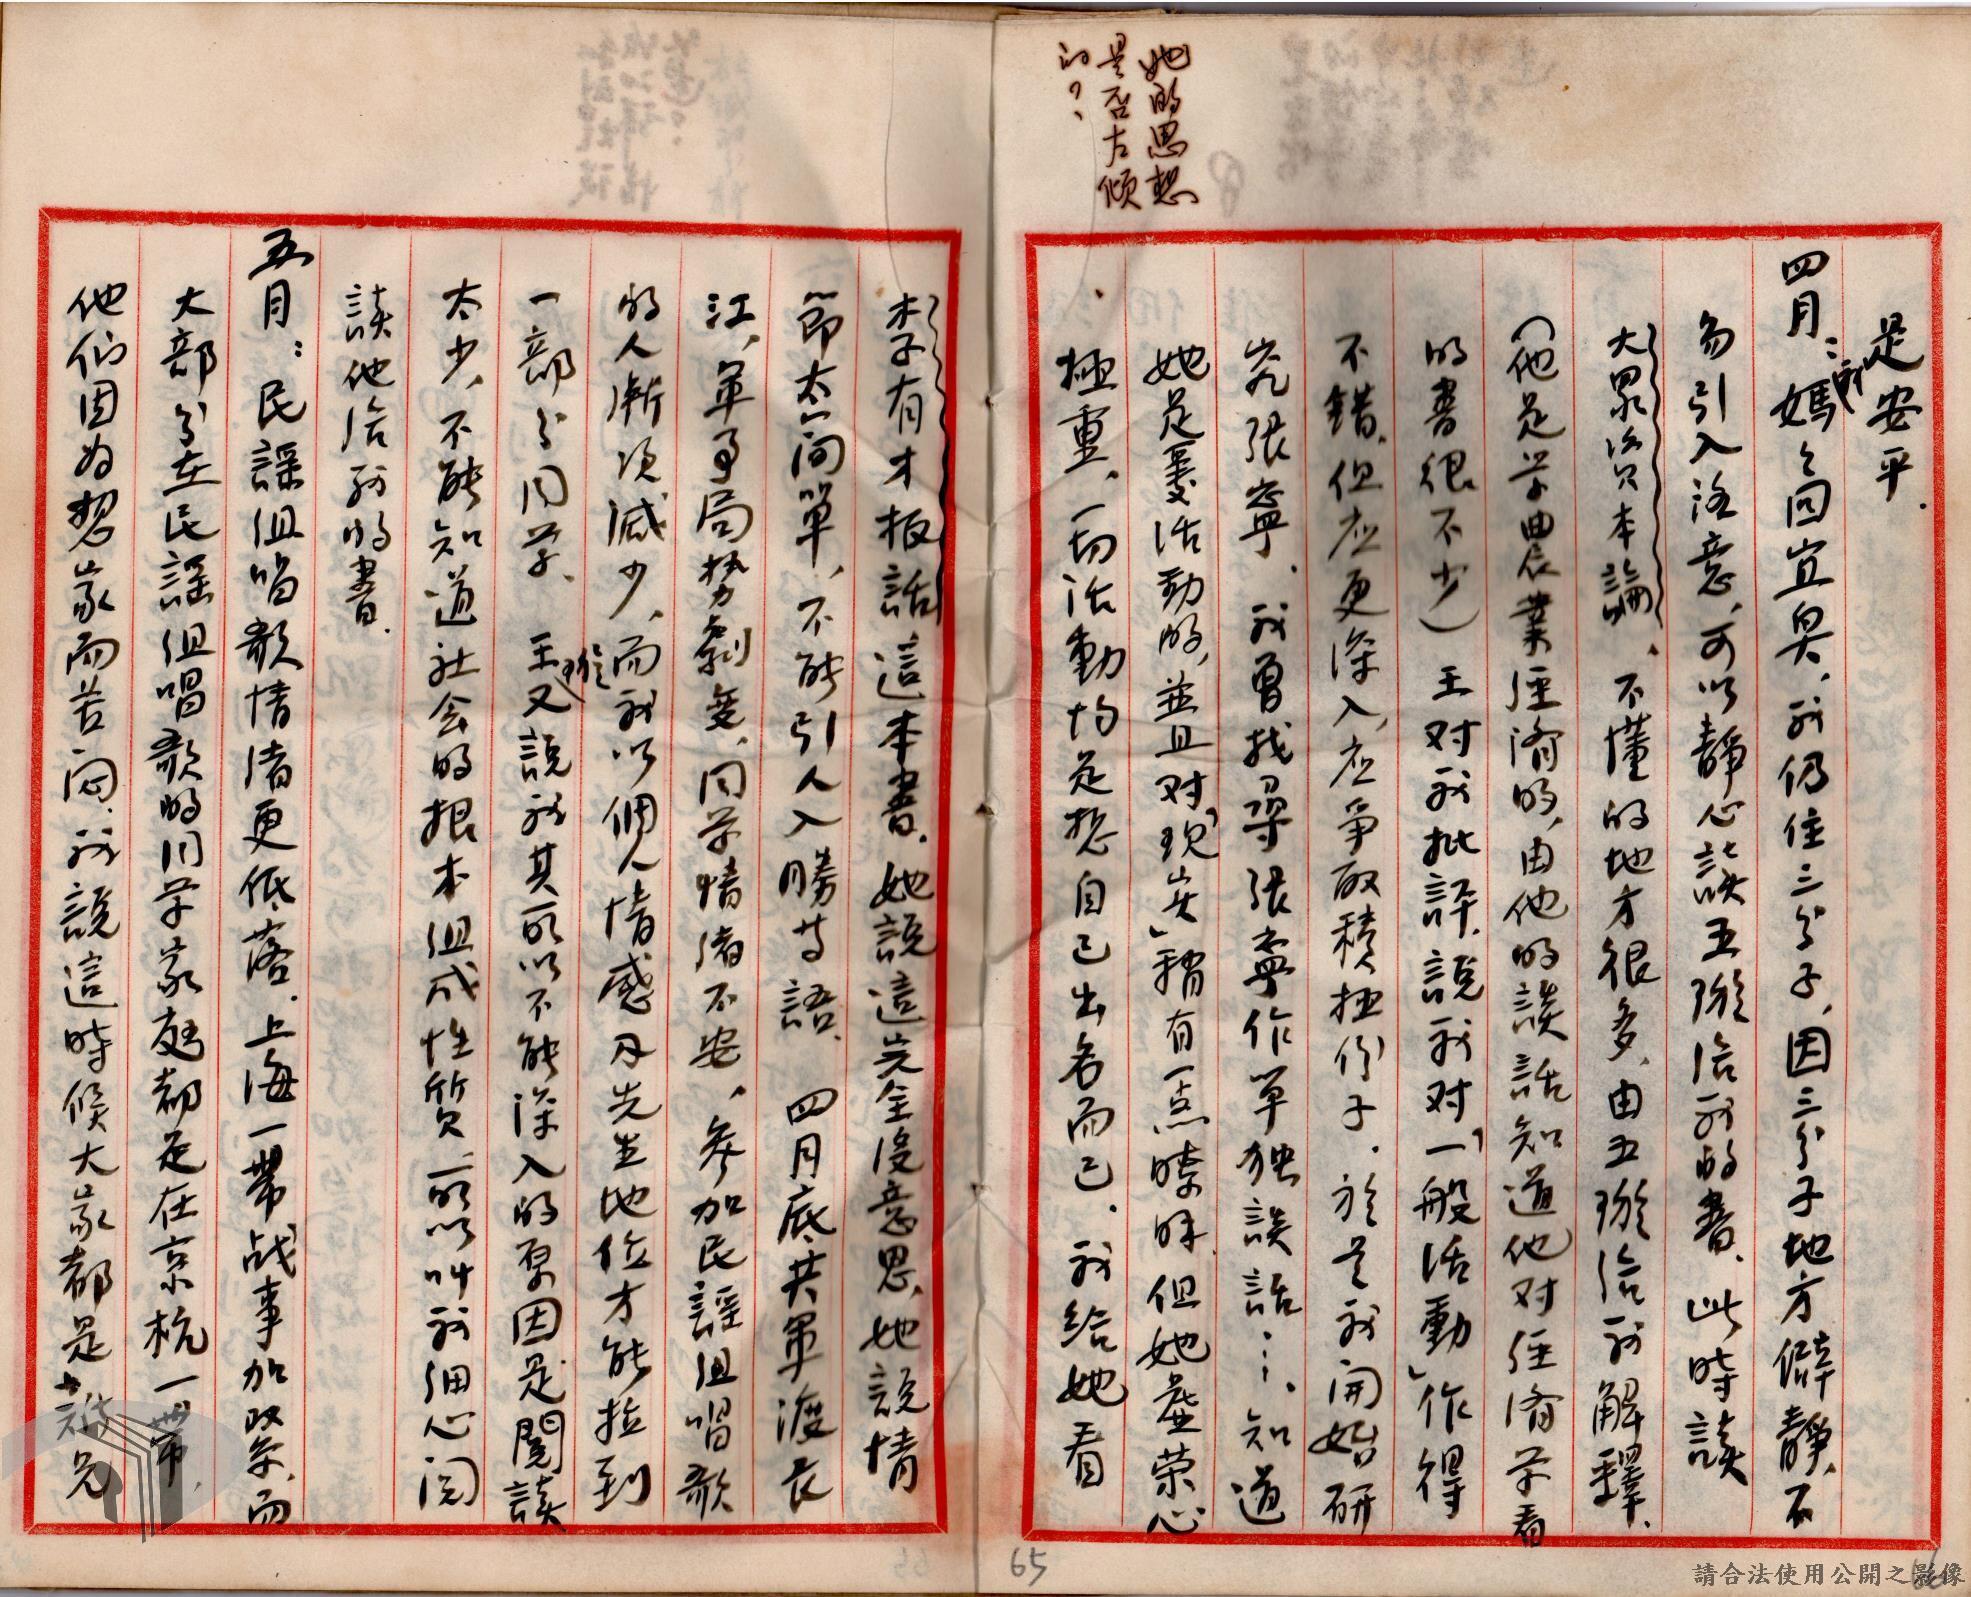 她的思想
是否左傾
的？
是安平.
四月：我媽々回宜昊，我仍住三分子，因三分子地方僻靜，不
易引入注意，可以靜心讀王璇給我的書，此時讀
大眾資本論，不懂的地方很多，由王璇给我解釋.
（他是学農業经濟的，由他的談話知道他对经濟学看
的書很不少）王对我批評，說我对「一般活動」作得
不錯，但应更深入，应爭取積極份子．於是我開始研
究張寧．我曾找尋張寧作單独談話…．知道
她是要活動的，並且对「現实」稍有一点曉得，但她虛荣心
極重，一切活動均是想自己出名而已．我给她看
李有才板話這本書．她說這完全没意思，她說情
節太简單，不能引人入勝等語．四月底共軍渡長
江，軍事局势劇变，同学情绪不安，参加民謠组唱歌
的人漸次減少，而我以個人情感及先生地位才能拉到
一部分同学．王璇又說我其所以不能深入的原因是閱讀
太少，不能知道社会的根本组成性質，所以叫我细心阅
讀他给我的書．
五月：民謠组唱歌情绪更低落．上海一帶战事加紧，而
大部分在民謠组唱歌的同学家庭都是在京杭一帶，
他们因为想家而苦闷，我說這時候大家都是
65
請合法使用公開之影像